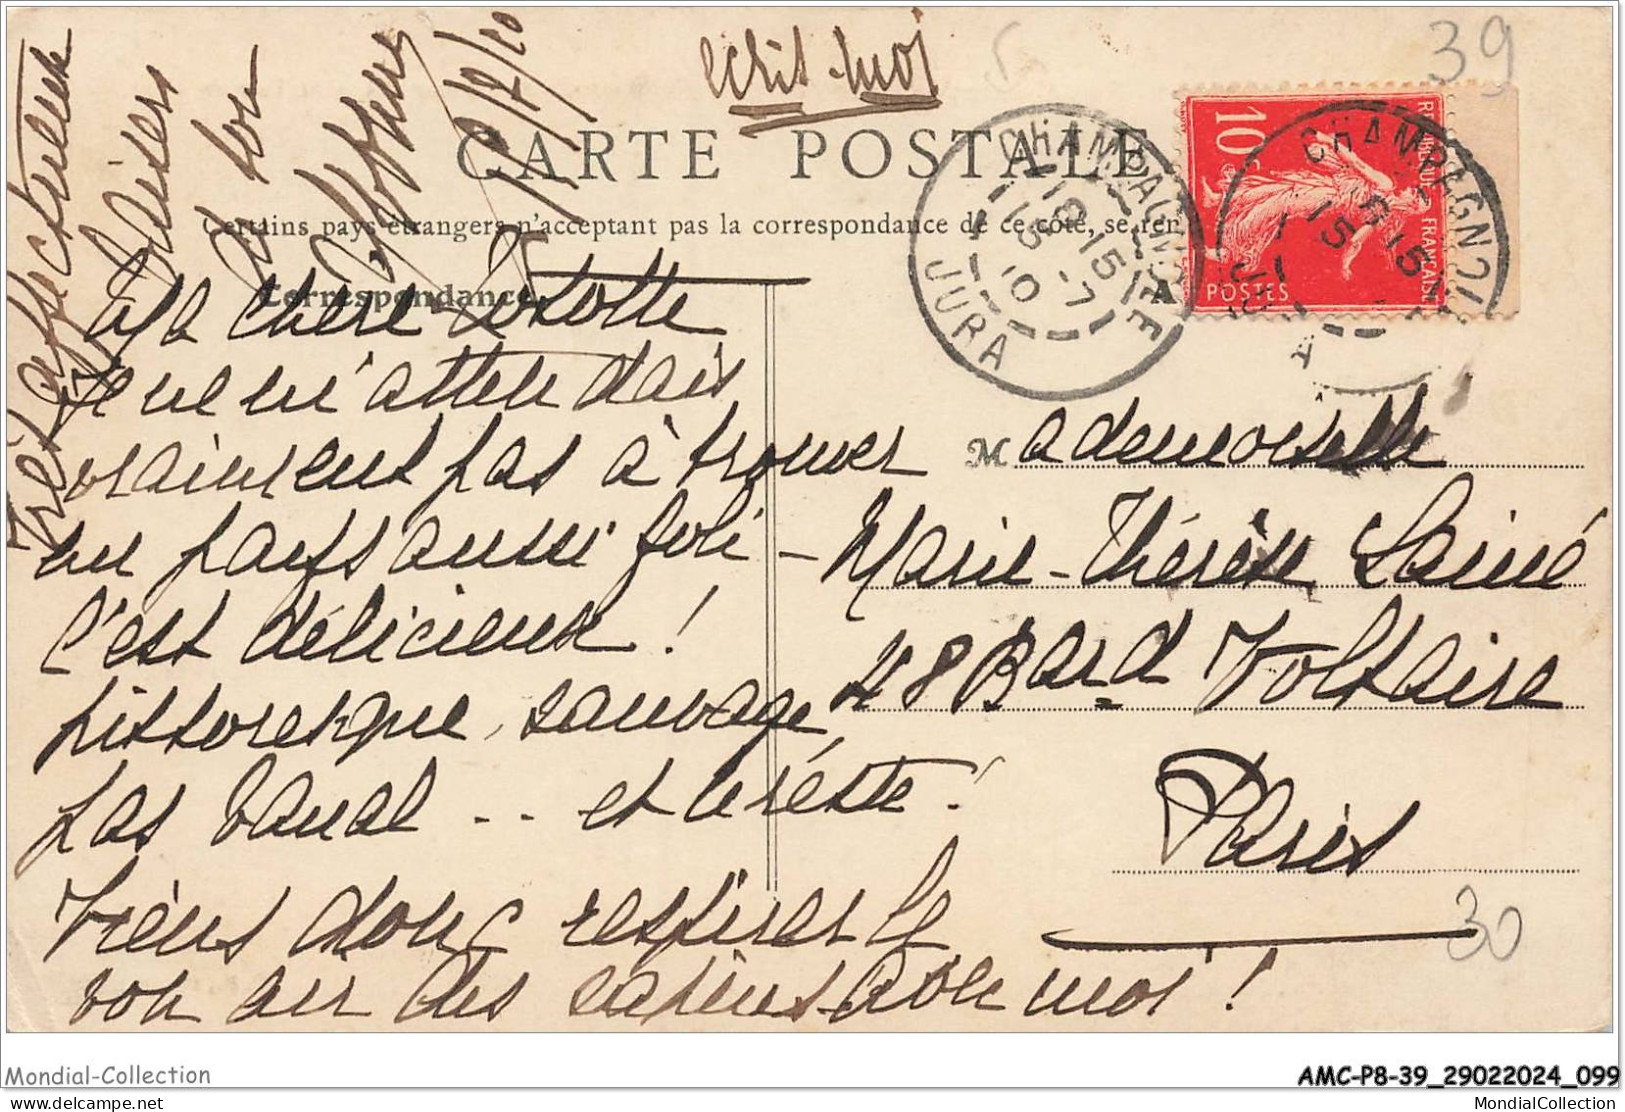 39
écris-moi
CARTE POSTALE
Certains pays étrangers n'acceptant pas la correspondance de ce côté, se ren
Correspondance
CHAMPAGNOLE
18 15
15 -7
10
JURA
CHAMPAGNOL
15
JU A
10c
POSTES
FRANÇAISE
Ma chère
Je ne m'attendais
vraiment pas à trouver
un pays aussi joli -
C'est délicieux !
pittoresque, sauvage,
pas banal .. et le reste !
Viens donc respirer le
bon air des sapins avec moi !
Très affectueux
baisers
de ton
15/7/10
Mademoiselle
Marie-Thérèse Lainé
48 Bard Voltaire
Paris
30
Mondial-Collection
AMC-P8-39_29022024_099
delcampe.net
MondialCollection